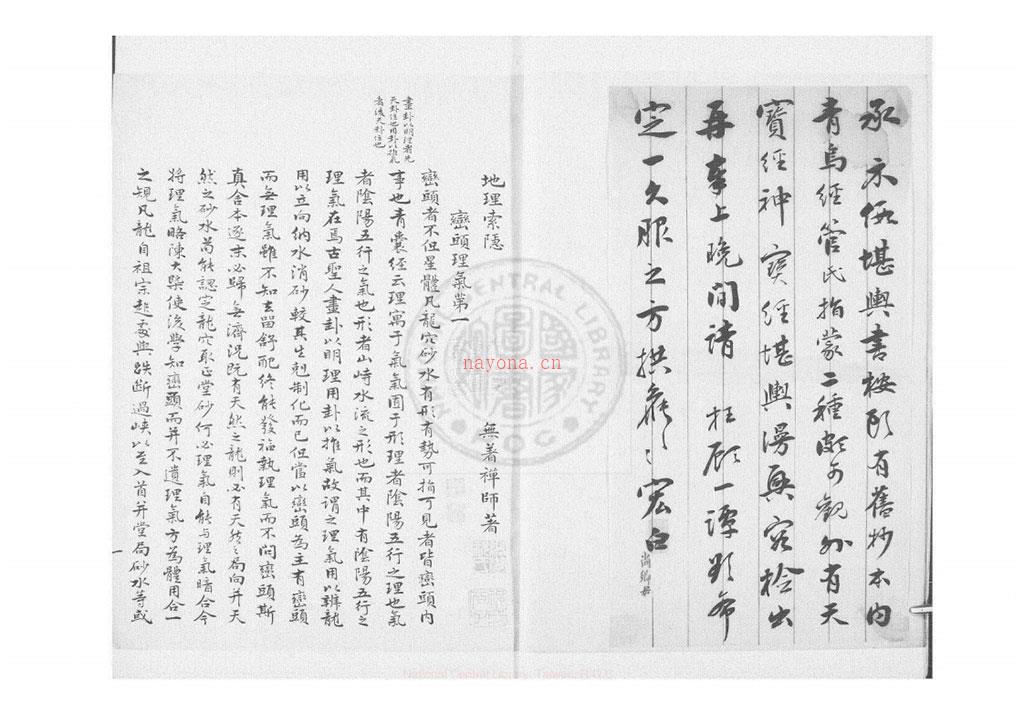 承示假堪輿書按頭有舊抄本內
青烏經管氏指蒙二種頗可觀外有天
寶經神寶經堪輿漫興容檢出
再奉上晚間請 枉顧一譚
定一久服之方拱宏白
地理索隱 無著禪師著
巒頭理氣第一
畫卦以明理者先
天卦位也用卦以推氣
者後天卦位也
巒頭者不但星體凡龍穴砂水有形有勢可指可見者皆巒頭內
事也青囊經云理寓于氣氣囿于形理者陰陽五行之理也氣
者陰陽五行之氣也形者山峙水流之形也而其中有陰陽五行之
理氣在焉古聖人畫卦以明理用卦以推氣故謂之理氣用以辨龍
用以立向納水消砂較其生剋制化而已但當以巒頭為主有巒頭
而無理氣雖不知去留舒配終能發福執理氣而不問巒頭斯
真舍本逐末必歸無濟況既有天然之龍則必有天然之局向并天
然之砂水苟能認定龍穴取正堂砂何必理氣自能与理氣暗合今
將理氣略陳大槩使後學知巒頭而并不遺理氣方為體用合一
之規凡龍自祖宗起處與跌斷過峽以至入首并堂局砂水等或
一
NATIONAL CENTRAL LIBRARY
R.O.C.
nayona.cn
National Central Library, Taiwan, R.O.C